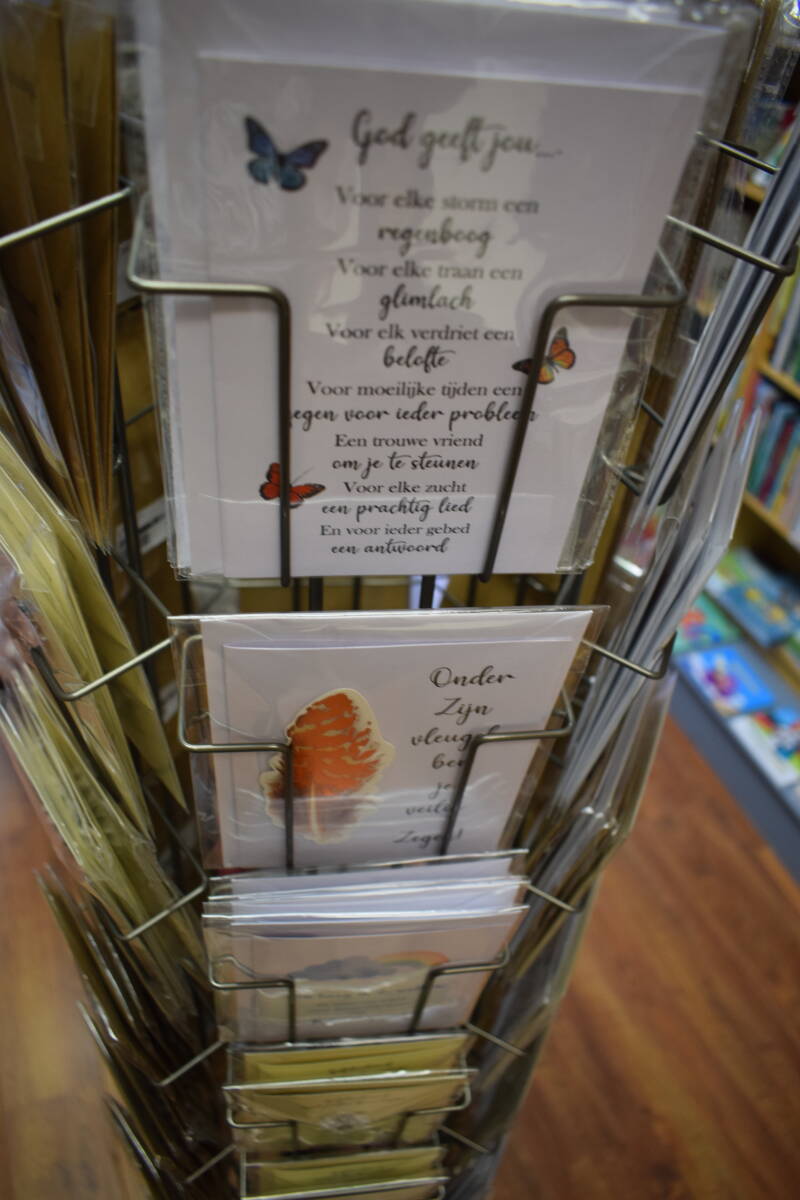 God geeft jou...
Voor elke storm een
regenboog
Voor elke traan een
glimlach
Voor elk verdriet een
belofte
Voor moeilijke tijden een
zegen voor ieder probleem
Een trouwe vriend
om je te steunen
Voor elke zucht
een prachtig lied
En voor ieder gebed
een antwoord
Onder
Zijn
vleugels
ben
je
veilig
Zegen!